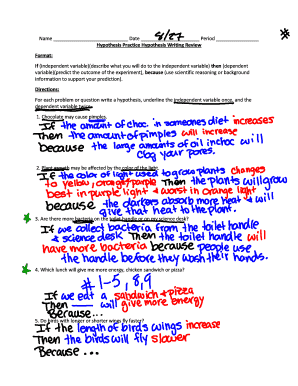 Name Date 8/27 Period *
Hypothesis Practice Hypothesis Writing Review
Format:
If (independent variable)(describe what you will do to the independent variable) then (dependent
variable)(predict the outcome of the experiment), because (use scientific reasoning or background
information to support your prediction).
Directions:
For each problem or question write a hypothesis, underline the independent variable once, and the
dependent variable twice.
1. Chocolate may cause pimples.
If the amount of choc in someones diet increases
Then the amount of pimples will increase
because the large amounts of oil in choc will
clog your pores.
2. Plant growth may be affected by the color of the light.
If the color of light used to grow plants changes
to yellow, orange, purple Then the plants will grow
best in purple light + worst in orange light
because the darkers absorb more heat + will
give that heat to the plant.
3. Are there more bacteria on the toilet handle or on my science desk?
If we collect bacteria from the toilet handle
+ science desk Then the toilet handle will
have more bacteria because people use
the handle before they wash their hands.
4. Which lunch will give me more energy, chicken sandwich or pizza?
# 1-5, 8,9
If we eat a sandwich + pizza
Then will give more energy
Because...
5. Do birds with longer or shorter wings fly faster?
If the length of birds wings increase
Then the birds will fly slower
Because ...